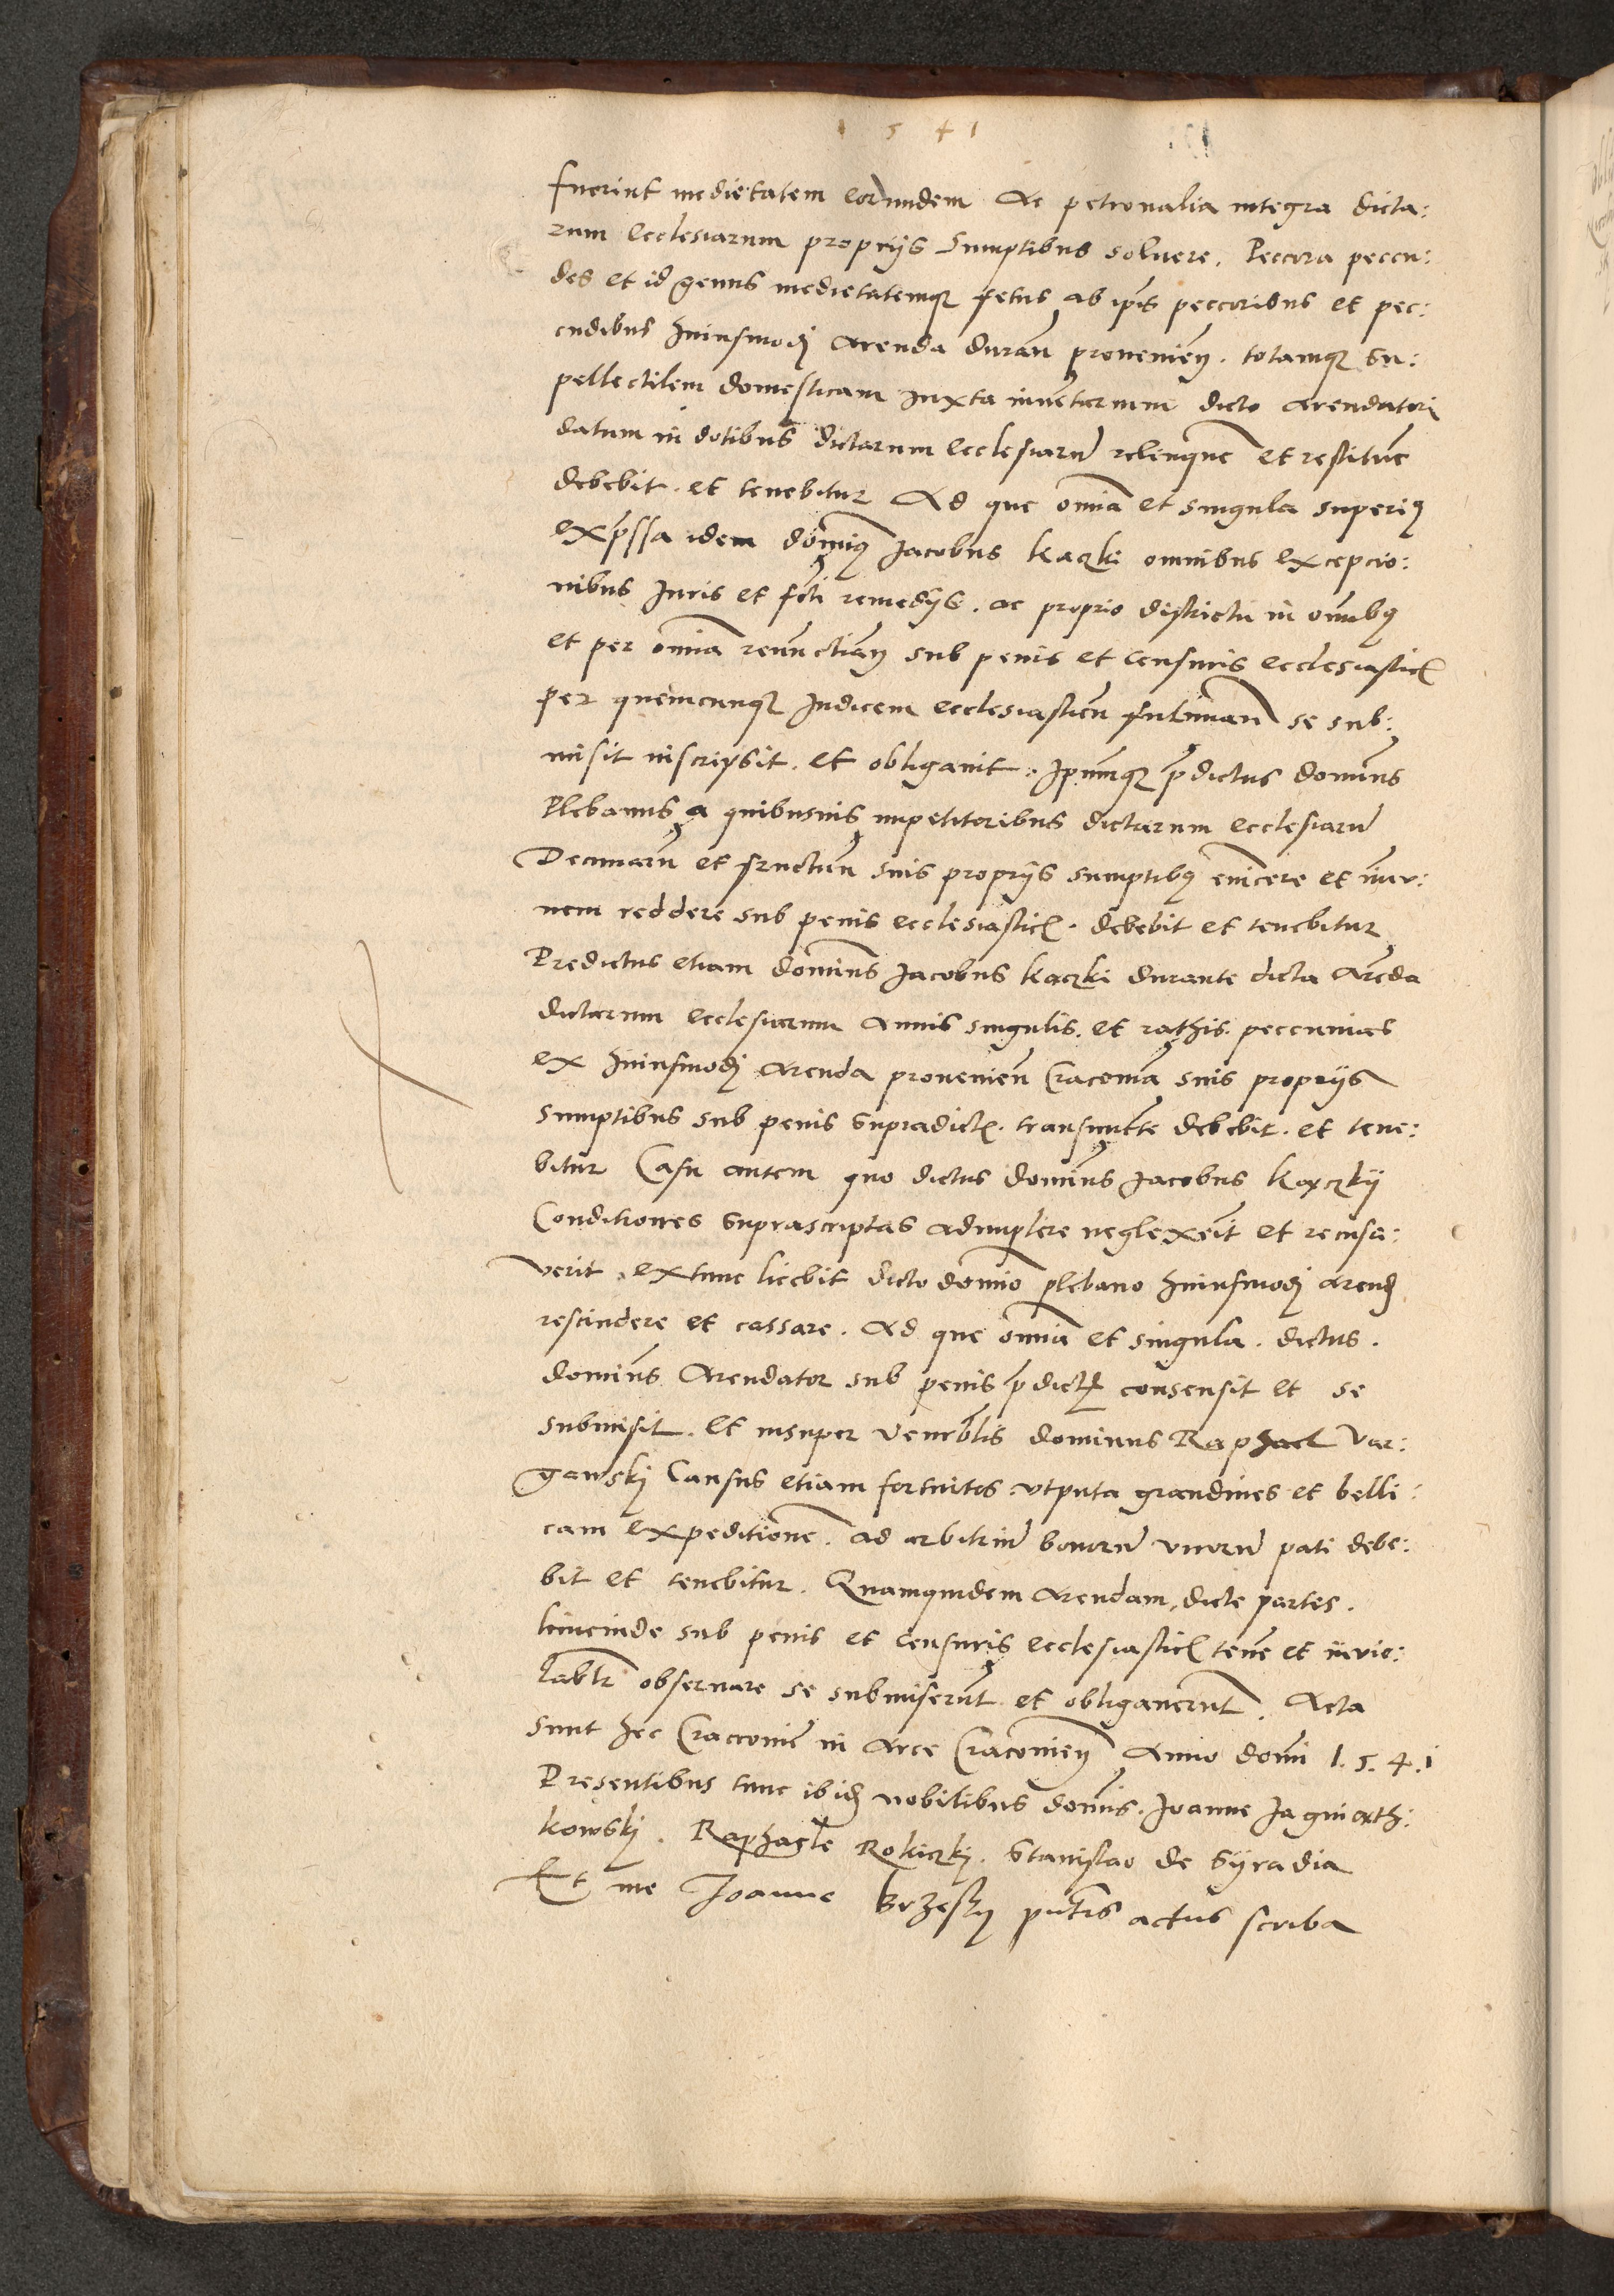 1541
fuerint medietatem eorundem Ac petronalia integra dicta:
rum Ecclesiarum proprijs Sumptibus soluere. Peccora peccu:
des et id genus medietatemq fetus ab ipis peccoribus et pec:
cudibus huiusmodj arenda duran prouenien. totamq Su:
pellectilem domesticam Juxta inuentarium dicto arendatorj
datum in dotibus dictarum Ecclesiaru relinque et restitue
debebit. et tenebitur Ad que omia et singula superi9
expssa idem domi9 Jacobus Kaczki omnibus excepcio:
nibus Juris et fcti remedijs. ac proprio districtu in omib9
et per omnia renunctian sub penis et Censuris ecclesiastic
per quemcunq Judicem ecclesiasticu fulminan se sub:
misit inscripsit. et obligauit. Ipumq pdictus dominus
Plebanus a quibusuis impetitoribus dictarum ecclesiaru
Decimaru et fructuu suis proprijs sumptib9 euincere et imu:
nem reddere sub penis ecclesiastic. debebit et tenebitur
Predictus etiam dominus Jacobus Kaczki durante dicta Areda
dictarum ecclesiarum Annis singulis. et rathis. peccunias
ex huiusmodj arenda prouenien Cracouia suis proprijs
sumptibus sub penis supradict. transmitte debebit. et tene:
bitur Casu autem quo dictus dominus Jacobus Kaczkij
Conditiones suprascriptas adimplere neglexeit et recusa:
verit. extunc licebit dicto domio plebano huiusmodj arend
rescindere et cassare. Ad que omia et singula. dictus.
dominus Arendator sub penis pdict consensit et se
submisit. Et insuper Venerblis dominus Raphael Var:
gawskj Causus etiam fortuitos vtputa grandines et belli:
cam expeditione. ad arbitriu bonoru viroru pati debe:
bit et tenebitur. Quamquidem Arendam, dicte partes.
hincinde sub penis et Censuris ecclesiastic tene et inuio:
labilr obseruare se submiserut et obligauerut. Acta
sunt hec Cracouie in Arce Cracouien Anno domi 1.5.4.1
Presentibus tunc ibid nobilibus domis. Joanne Jaguiath:
kowskj. Raphaele Rokiczkj. Stanislao de Syradia
Et me Joanne Brzeskj pntis actus scriba